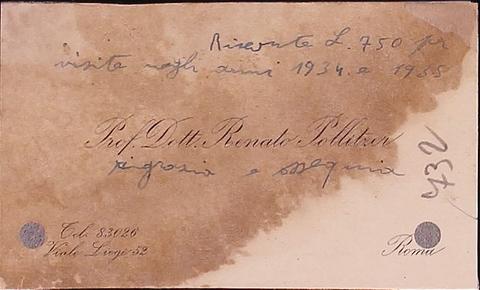 Ricevute L. 750 per
visite negli anni 1934 e 1935
Prof. Dott. Renato Pollitzer
ringrazia e ossequia
432
Tel. 83026
Viale Liegi 52
Roma